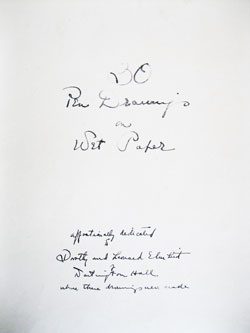 30
Pen Drawings
on
Wet Paper
affectionately dedicated
to
Dorothy and Leonard Elmhirst
Dartington Hall
where these drawings were made